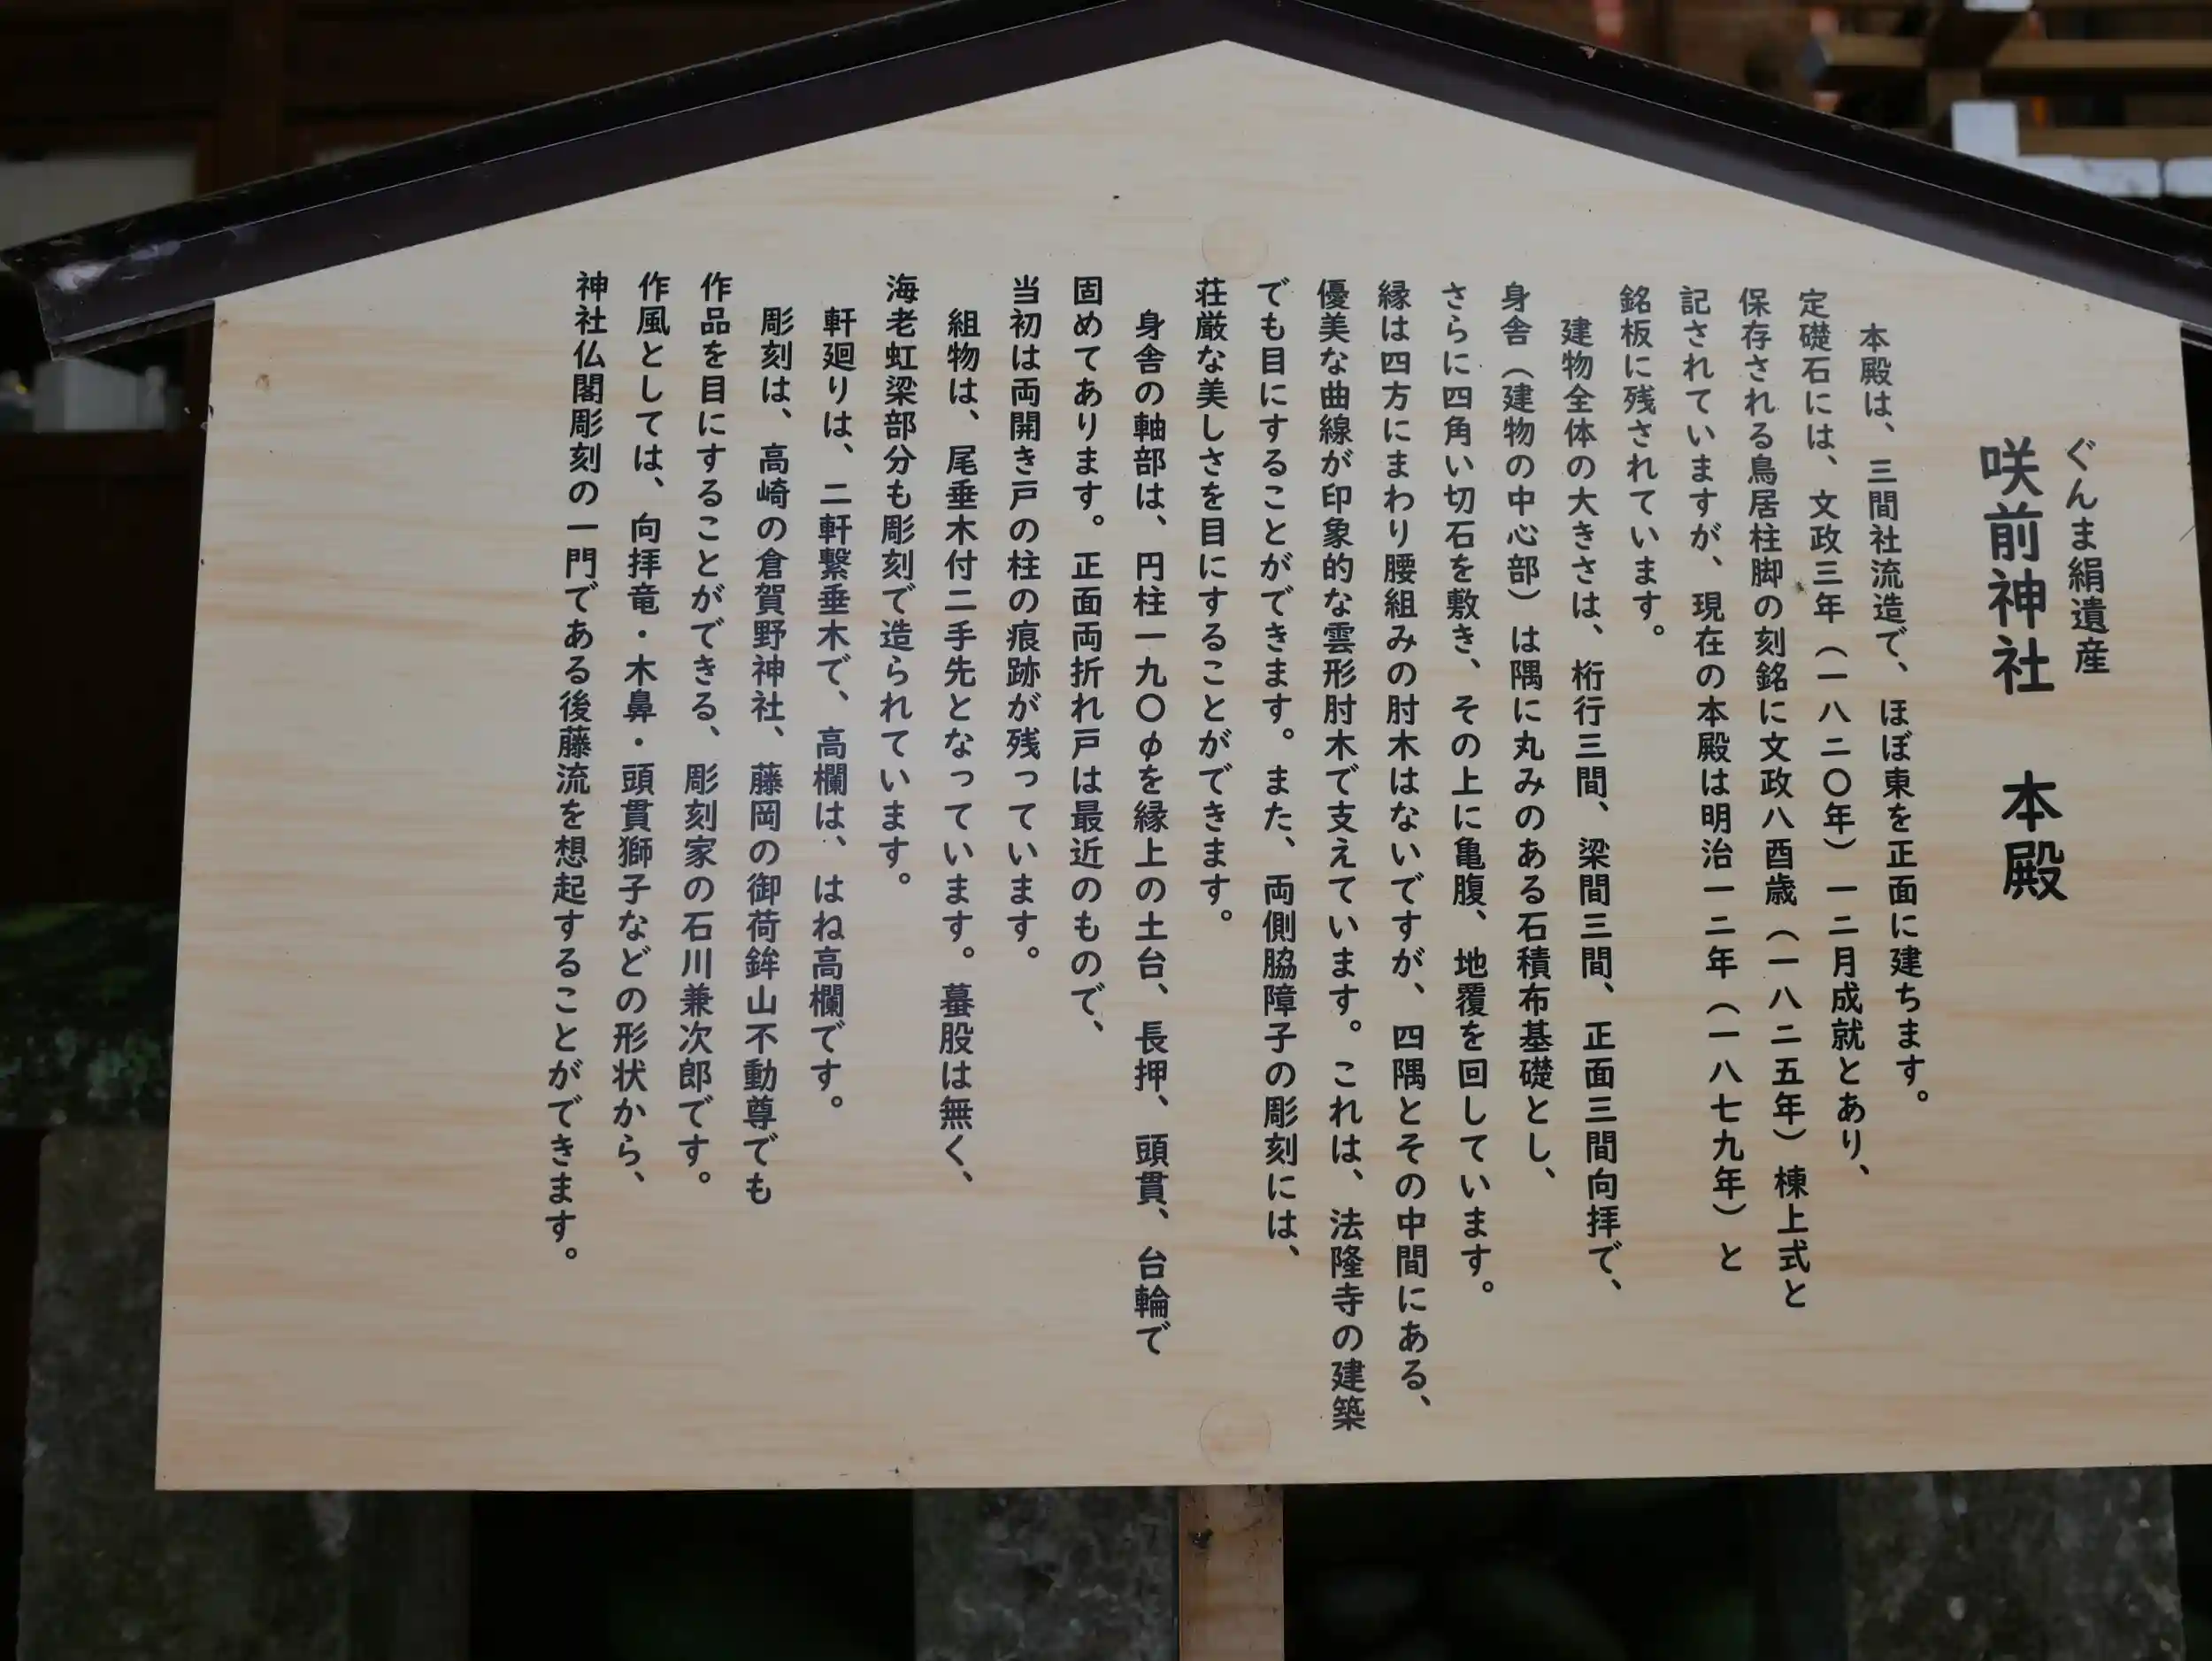 ぐんま絹遺産
咲前神社　本殿
本殿は、三間社流造で、ほぼ東を正面に建ちます。
定礎石には、文政三年（一八二〇年）一二月成就とあり、
保存される鳥居柱脚の刻銘に文政八酉歳（一八二五年）棟上式と
記されていますが、現在の本殿は明治一二年（一八七九年）と
銘板に残されています。
建物全体の大きさは、桁行三間、梁間三間、正面三間向拝で、
身舎（建物の中心部）は隅に丸みのある石積布基礎とし、
さらに四角い切石を敷き、その上に亀腹、地覆を回しています。
縁は四方にまわり腰組みの肘木はないですが、四隅とその中間にある、
優美な曲線が印象的な雲形肘木で支えています。これは、法隆寺の建築
でも目にすることができます。また、両側脇障子の彫刻には、
荘厳な美しさを目にすることができます。
身舎の軸部は、円柱一九〇φを縁上の土台、長押、頭貫、台輪で
固めてあります。正面両折れ戸は最近のもので、
当初は両開き戸の柱の痕跡が残っています。
組物は、尾垂木付二手先となっています。蟇股は無く、
海老虹梁部分も彫刻で造られています。
軒廻りは、二軒繋垂木で、高欄は、はね高欄です。
彫刻は、高崎の倉賀野神社、藤岡の御荷鉾山不動尊でも
作品を目にすることができる、彫刻家の石川兼次郎です。
作風としては、向拝竜・木鼻・頭貫獅子などの形状から、
神社仏閣彫刻の一門である後藤流を想起することができます。